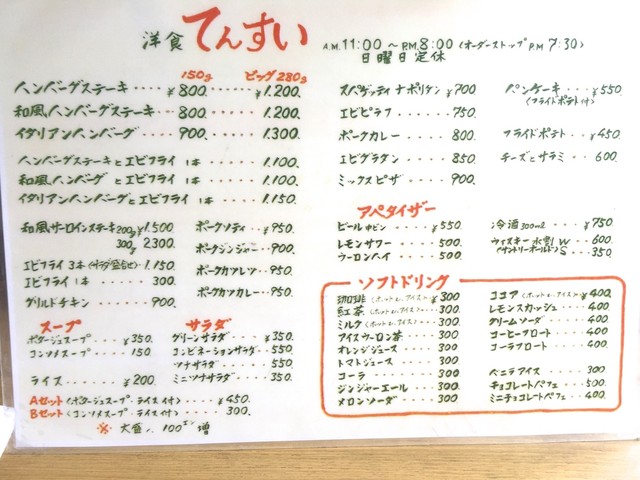 洋食 てんすい A.M.11:00～P.M.8:00(オーダーストップP.M 7:30)
日曜日定休
150g ビッグ280g
ハンバーグステーキ ‥ ¥800. ‥‥ ¥1.200.
和風ハンバーグステーキ ‥ 800. ‥‥ 1.200
イタリアンハンバーグ ‥‥ 900. ‥‥ 1.300
ハンバーグステーキとエビフライ 1本 ‥‥ 1.100.
和風ハンバーグとエビフライ 1本 ‥‥ 1.100.
イタリアンハンバーグとエビフライ 1本 ‥‥ 1.150.
和風サーロインステーキ 200g ¥1.500
300g 2.300.
エビフライ 3本 1.150.
エビフライ 1本 ‥‥ 300.
グリルドチキン ‥‥ 900.
ポークソティ ‥‥ ¥950.
ポークジンジャー ‥‥ 900.
ポークカツレツ ‥‥ 950.
ポークカツカレー ‥‥ 950.
スープ
ポタージュスープ ‥‥ ¥350.
コンソメスープ ‥‥ 150.
ライス ‥‥ ¥200.
サラダ
グリーンサラダ ‥‥ ¥350.
コンビネーションサラダ ‥‥ 550.
ツナサラダ ‥‥ 550.
ミニツナサラダ ‥‥ 350.
Aセット(ポタージュスープ・ライス付) ‥‥ ¥450.
Bセット(コンソメスープ・ライス付) ‥‥ 300.
※ 大盛ハ 100エン増
スパゲッティナポリタン ¥700
エビピラフ ‥‥ 750.
ポークカレー ‥‥ 800.
エビグラタン ‥‥ 850
ミックスピザ ‥‥ 900.
パンケーキ ‥‥ ¥550.
(フライドポテト付)
フライドポテト ‥‥ ¥450.
チーズとサラミ ‥‥ 600.
アペタイザー
ビール中ビン ‥‥ ¥550
レモンサワー ‥‥ 500.
ウーロンハイ ‥‥ 500.
冷酒 300ml ‥‥ ¥750
ウィスキー水割 W ‥‥ 600.
(サントリーオールド) S ‥‥ 350.
ソフトドリンク
珈琲(ホットor.アイス) ¥300
紅茶(ホットor.アイス) ‥‥ 300
ミルク(ホットor.アイス) ‥‥ 300
アイスウーロン茶 ‥‥ 300
オレンジジュース ‥‥ 300
トマトジュース ‥‥ 300
コーラ ‥‥ 300
ジンジャーエール ‥‥ 300
メロンソーダ ‥‥ 300
ココア(ホットor.アイス) ¥400
レモンスカッシュ ‥‥ 400
クリームソーダ ‥‥ 400
コーヒーフロート ‥‥ 400
コーラフロート ‥‥ 400
バニラアイス ‥‥ 300
チョコレートパフェ ‥‥ 500
ミニチョコレートパフェ ‥‥ 400